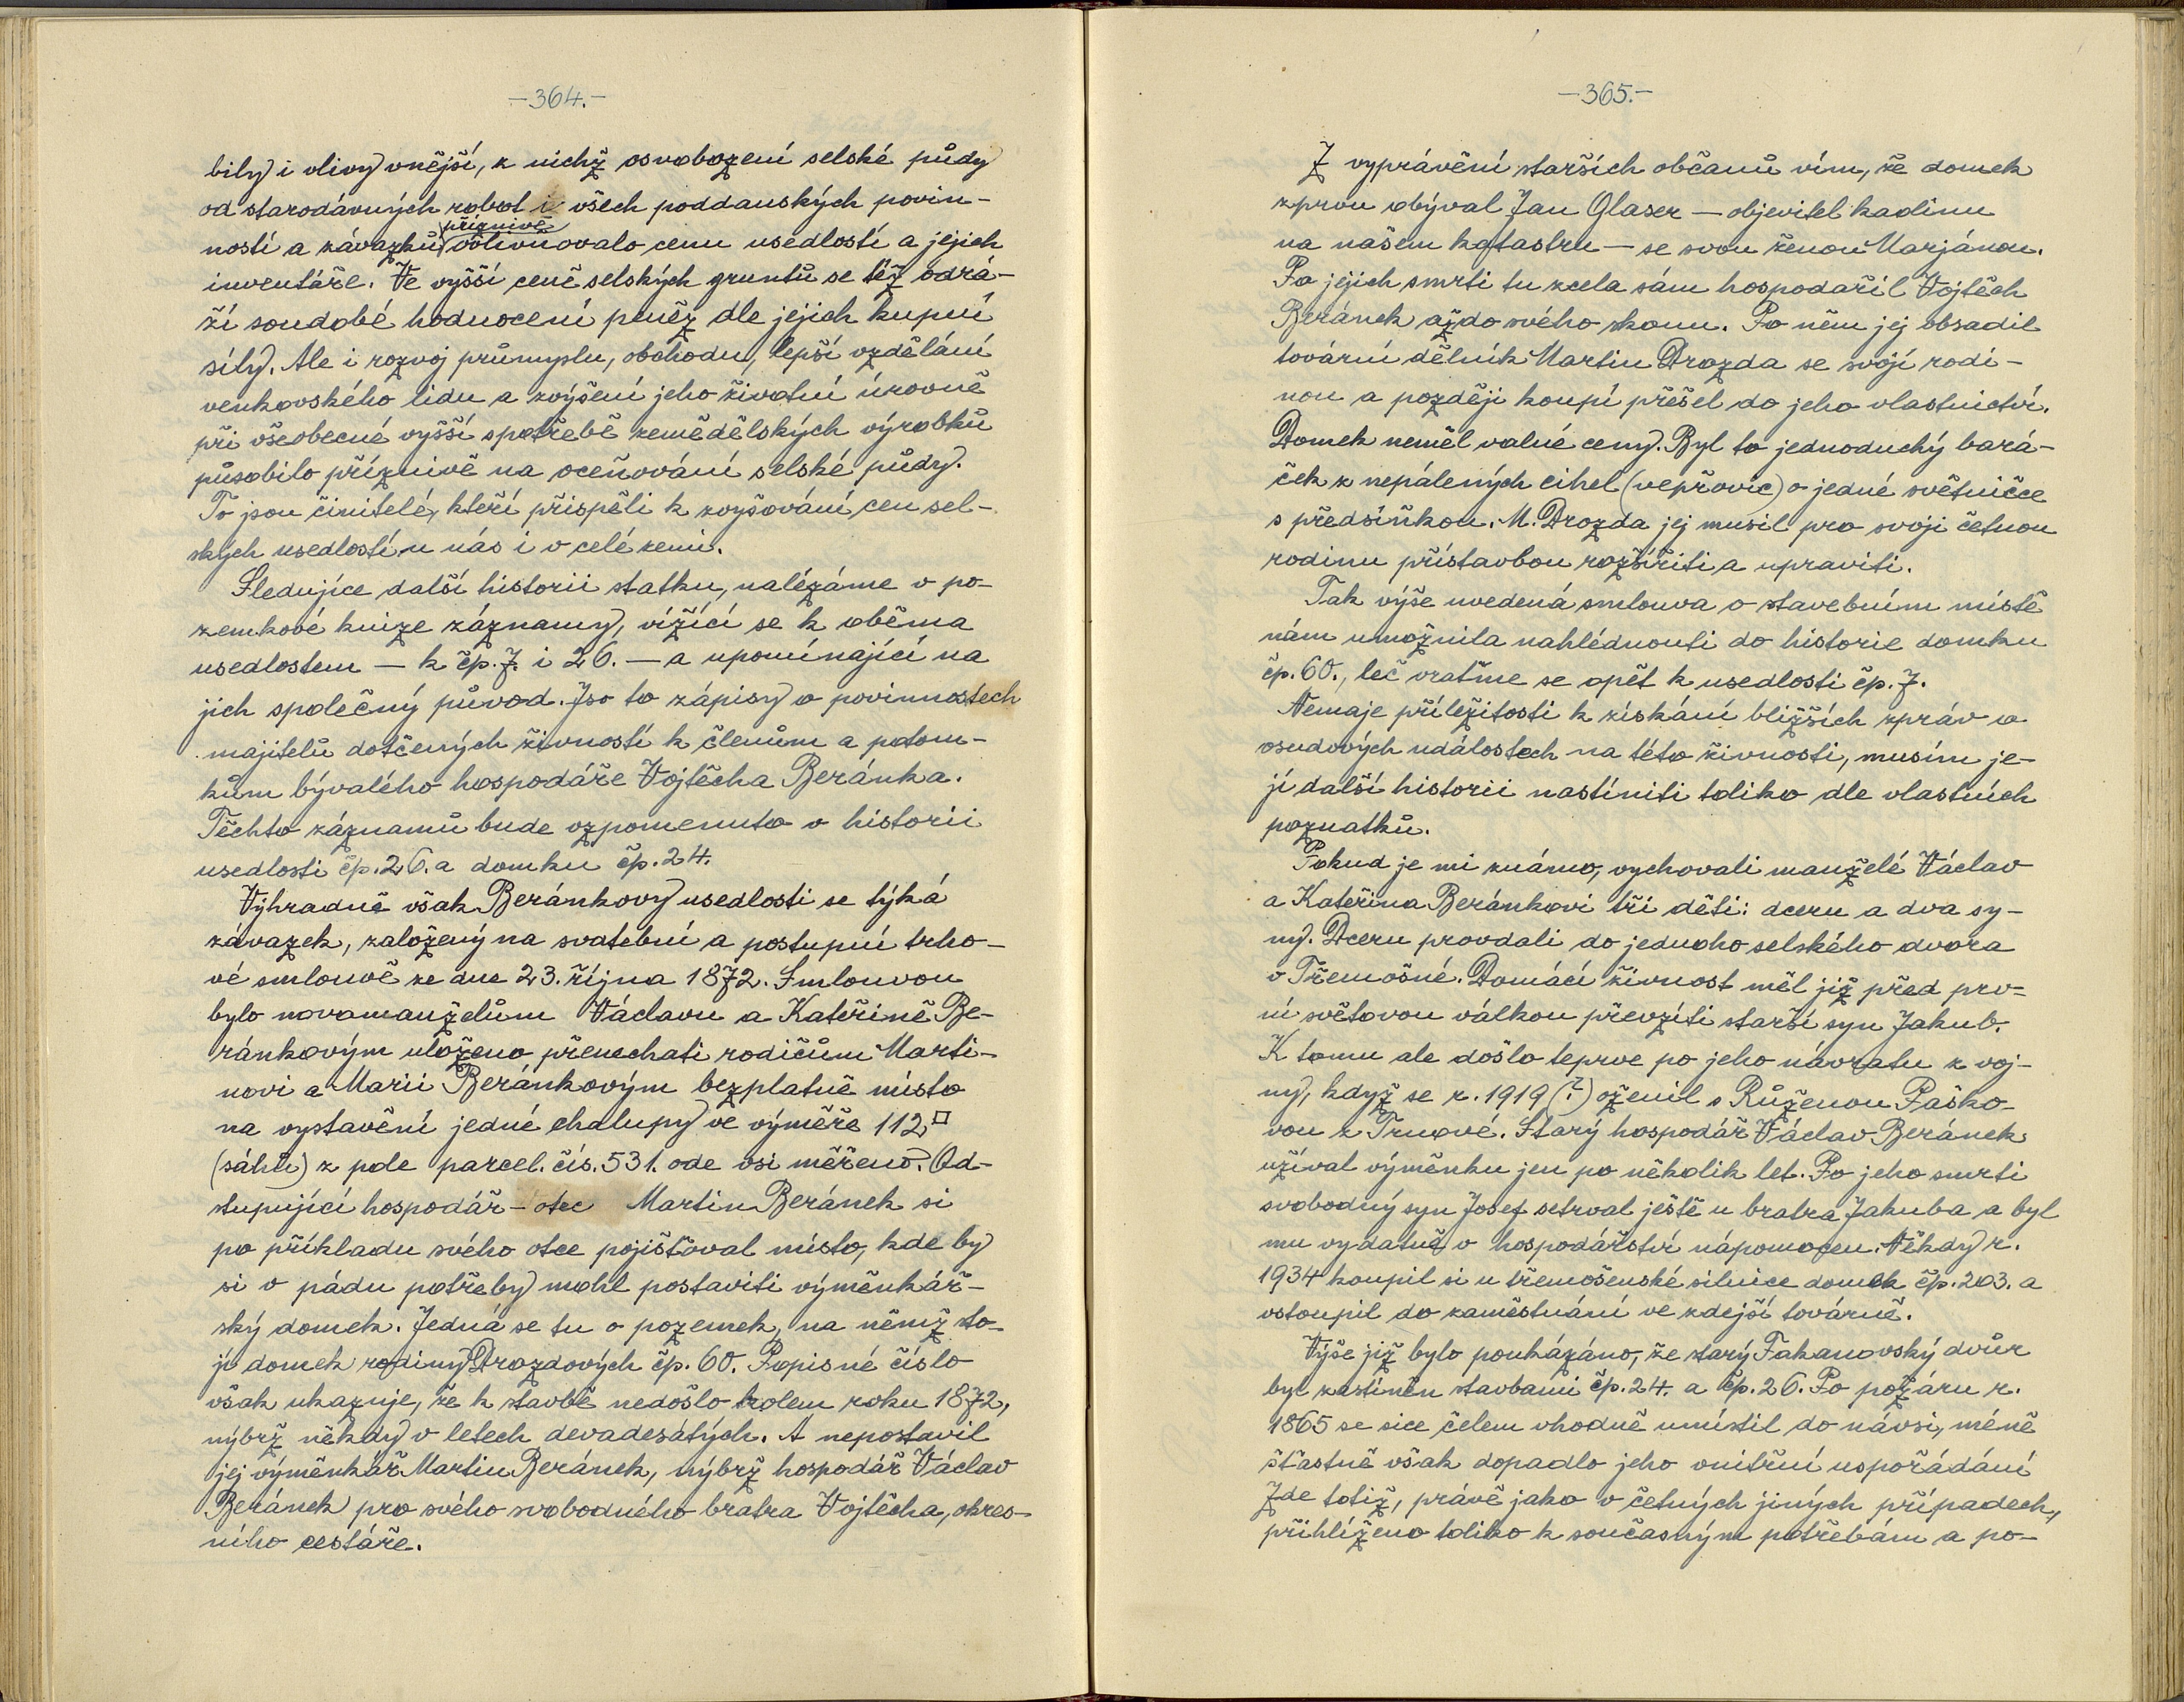 -364.-
bily i vlivy vnější, z nichž osvobození selské půdy
od starodávných robot i všech poddanských povin-
příznivě
ností a závazků ovlivňovalo cenu usedlostí a jejich
inventáře. Ve vyšší ceně selských gruntů se též odrá-
ží soudobé hodnocení peněz dle jejich kupní
síly. Ale i rozvoj průmyslu, obchodu, lepší vzdělání
venkovského lidu a zvýšení jeho životní úrovně
při všeobecné vyšší spotřebě zemědělských výrobků
působilo příznivě na oceňování selské půdy.
To jsou činitelé, kteří přispěli k zvyšování cen sel-
ských usedlostí u nás i v celé zemi.
Sledujíce další historii statku, nalézáme v po-
zemkové knize záznamy, vížící se k oběma
usedlostem — k čp. 7. i 26. — a upomínající na
jich společný původ. Jso to zápisy o povinnostech
majitelů dotčených živností k členům a potom-
kům bývalého hospodáře Vojtěcha Beránka.
Těchto záznamů bude vzpomenuto v historii
usedlosti čp. 26. a domku čp. 24.
Výhradně však Beránkovy usedlosti se týká
závazek, založený na svatební a postupní trho-
vé smlouvě ze dne 23. října 1872. Smlouvou
bylo novomanželům Václavu a Kateřině Be-
ránkovým uloženo přenechati rodičům Marti-
novi a Marii Beránkovým bezplatně místo
na vystavění jedné chalupy ve výměře 112□
(sáhů) z pole parcel. čís. 531. ode vsi měřeno. Od-
stupující hospodář - otec Martin Beránek si
po příkladu svého otce pojišťoval místo, kde by
si v pádu potřeby mohl postaviti výměnkář-
ský domek. Jedná se tu o pozemek, na němž sto-
jí domek rodiny Drozdových čp. 60. Popisné číslo
však ukazuje, že k stavbě nedošlo kolem roku 1872,
nýbrž někdy v letech devadesátých. A nepostavil
jej výměnkář Martin Beránek, nýbrž hospodář Václav
Beránek pro svého svobodného bratra Vojtěcha, okres-
ního cestáře.
-365.-
Z vyprávění starších občanů vím, že domek
zprvu obýval Jan Glaser — objevitel kaolinu
na našem katastru — se svou ženou Marjánou.
Po jejich smrti tu zcela sám hospodařil Vojtěch
Beránek až do svého skonu. Po něm jej obsadil
tovární dělník Martin Drozda se svojí rodi-
nou a později koupí přešel do jeho vlastnictví.
Domek neměl valné ceny. Byl to jednoduchý bará-
ček z nepálených cihel (vepřovic) o jedné světničce
s předsíňkou. M. Drozda jej musil pro svoji četnou
rodinu přístavbou rozšířiti a upraviti.
Tak výše uvedená smlouva o stavebním místě
nám umožnila nahlédnouti do historie domku
čp. 60., leč vraťme se opět k usedlosti čp. 7.
Nemaje příležitosti k získání bližších zpráv o
osudových událostech na této živnosti, musím je-
jí další historii nastíniti toliko dle vlastních
poznatků.
Pokud je mi známo, vychovali manželé Václav
a Kateřina Beránkovi tři děti: dceru a dva sy-
ny. Dceru provdali do jednoho selského dvora
v Třemošné. Domácí živnost měl již před prv-
ní světovou válkou převzíti starší syn Jakub.
K tomu ale došlo teprve po jeho návratu z voj-
ny, když se r. 1919 (?) oženil s Růženou Paško-
vou z Trnové. Starý hospodář Václav Beránek
užíval výměnku jen po několik let. Po jeho smrti
svobodný syn Josef setrval ještě u bratra Jakuba a byl
mu vydatně v hospodářství nápomocen. Někdy r.
1934 koupil si u třemošenské silnice domek čp. 203. a
vstoupil do zaměstnání ve zdejší továrně.
Výše již bylo poukázáno, že starý Fakanovský dvůr
byl zastíněn stavbami čp. 24. a čp. 26. Po požáru r.
1865 se sice čelem vhodně umístil do návsi, méně
šťastně však dopadlo jeho vnitřní uspořádání
Zde totiž, právě jako v četných jiných případech,
přihlíženo toliko k současným potřebám a po-